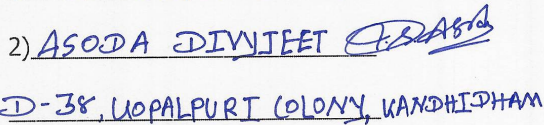 2) ASODA DIVYJEET
D-38, GOPALPURI COLONY, GANDHIDHAM